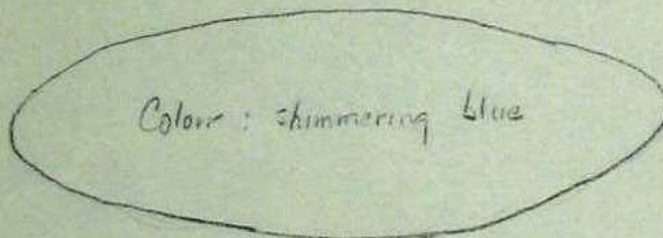 Colour : shimmering blue